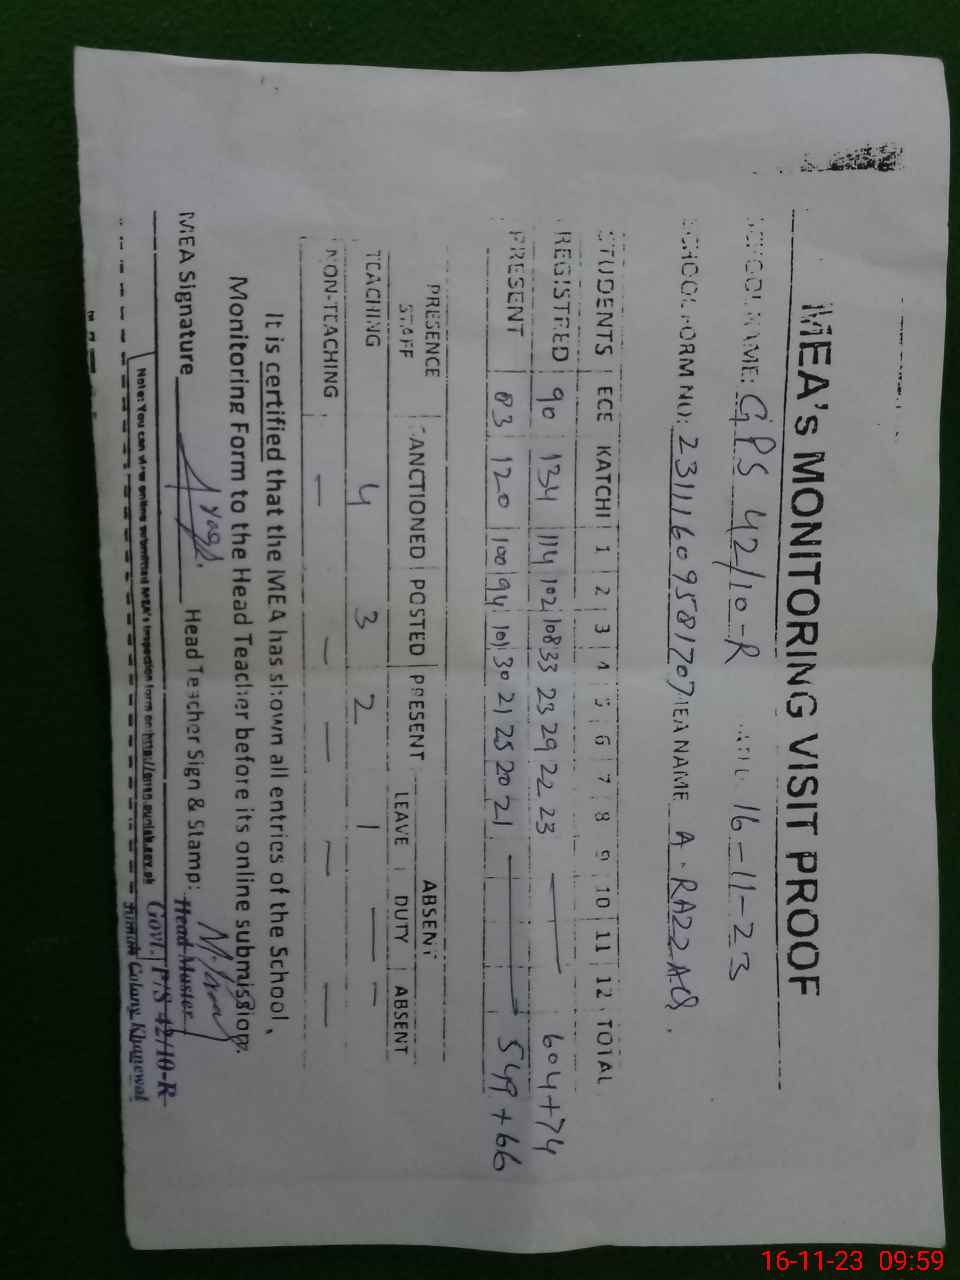 MEA's MONITORING VISIT PROOF
SCHOOL NAME: GPS 42/10-R DATE: 16-11-23
SCHOOL FORM NO: 23111609581707 MEA NAME A. RAZZAQ.
STUDENTS ECE KATCHI 1 2 3 4 5 6 7 8 9 10 11 12 TOTAL
REGISTRED 90 134 114 102 108 33 23 29 22 23 — 604+74
PRESENT 83 120 100 94 101 30 21 25 20 21 — 549+66
PRESENCE ABSENT
STAFF SANCTIONED POSTED PRESENT LEAVE DUTY ABSENT
TEACHING 4 3 2 1 — –
NON-TEACHING — – — – — —
It is certified that the MEA has shown all entries of the School
Monitoring Form to the Head Teacher before its online submission.
MEA Signature Head Teacher Sign & Stamp:
Head Master
Note: You can view online submitted MEA's inspection form on
Govt. P/S 42/10-R
Colony Khanewal
16-11-23 09:59